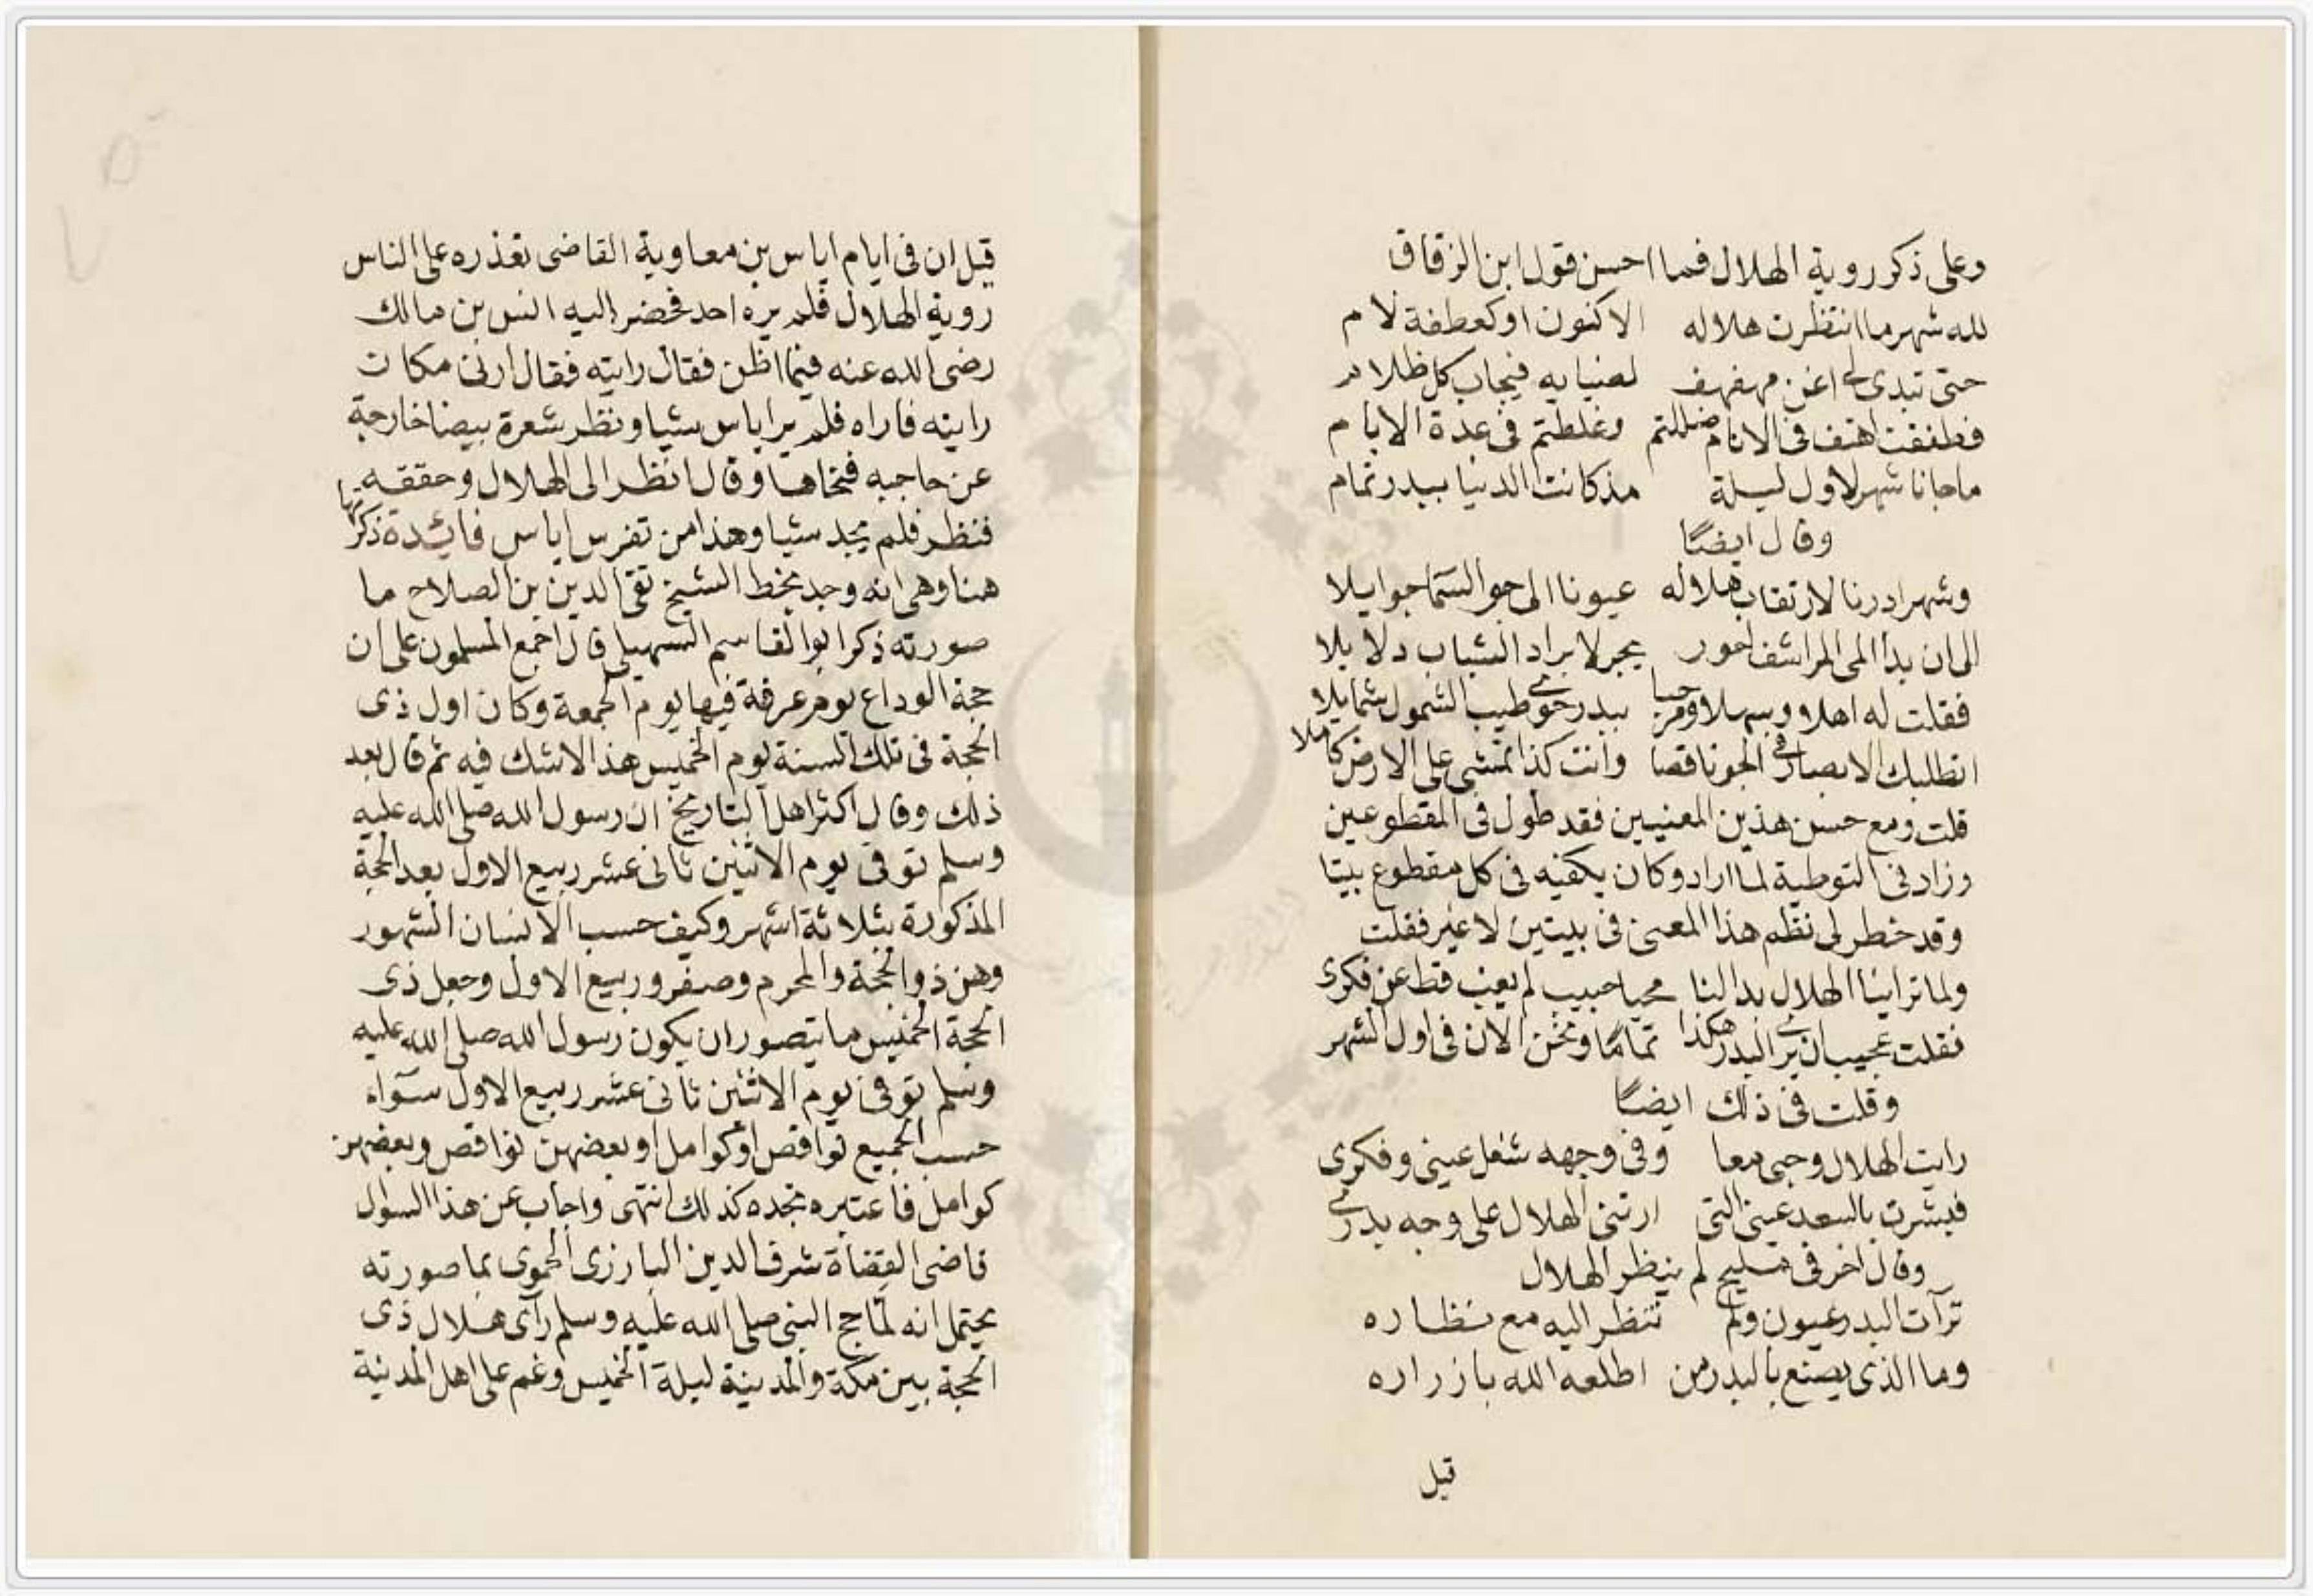 وعلى ذكر روية الهلال فما احسن قول ابن الزقاق
لله شهر ما انتظرت هلاله الا كنون او كعطفة لام
حتى تبدى لى اغن مهفهف لضيايه فيجاب كل ظلام
فطفقت اهتف فى الانام ضللتم وغلطتم فى عدة الايام
ما جانا شهر لاول ليلة مذ كانت الدنيا ببدر تمام
وقال ايضًا
وشهر ادرنا لارتقاب هلاله عيونا الى جو السمآ جوايلا
الى ان بدا المى المراشف احور يجر لابراد الشباب دلايلا
فقلت له اهلا وسهلا ومرحبا ببدر حوى طيب الشمول شمايلا
اتطلبك الابصار فى الجو ناقصا وانت كذا تمشى على الارض كاملا
قلت ومع حسن هذين المعنيين فقد طول فى المقطوعين
وزاد فى التوطية لما اراد وكان يكفيه فى كل مقطوع بيتا
وقد خطر لى نظم هذا المعنى فى بيتين لا غير فقلت
ولما تراينا الهلال بدا لنا محيا حبيب لم يغب قط عن فكرى
فقلت عجيب ان يرى البدر هكذا تمامًا ونحن الان فى اول الشهر
وقلت فى ذلك ايضًا
رايت الهلال وحبى معا وفى وجهه شغل عينى وفكرى
فبشرت بالسعد عينى التى ارتنى الهلال على وجه بدرى
وقال اخر فى مليح لم ينظر الهلال
ترآت البدر عيون ولم تنظر اليه مع نظاره
وما الذى يصنع بالبدر من اطلعه الله بازراره
قيل
قيل ان فى ايام اياس بن معاوية القاضى تعذره على الناس
روية الهلال فلم يره احد فحضر اليه انس بن مالك
رضى الله عنه فيما اظن فقال رايته فقال ارنى مكان
رايته فاراه فلم ير اياس شيا ونظر شعرة بيضا خارجة
عن حاجبه فنحاها وقال انظر الى الهلال وحققه
فنظر فلم يجد شيا وهذا من تفرس اياس فايدة ذكرتها
هنا وهى انه وجد بخط الشيخ تقى الدين بن الصلاح ما
صورته ذكر ابو القاسم السهيلى قال اجمع المسلمون على ان
حجة الوداع يوم عرفة فيها يوم الجمعة وكان اول ذى
الحجة فى تلك السنة يوم الخميس هذا لا شك فيه ثم قال بعد
ذلك وقال اكثر اهل التاريخ ان رسول الله صلى الله عليه
وسلم توفى يوم الاثنين ثانى عشر ربيع الاول بعد الحجة
المذكورة بثلاثة اشهر وكيف حسب الانسان الشهور
وهن ذو الحجة والمحرم وصفر وربيع الاول وجعل ذى
الحجة الخميس ما يتصور ان يكون رسول الله صلى الله عليه
وسلم توفى يوم الاثنين ثانى عشر ربيع الاول سوآء
حسب الجميع نواقص او كوامل او بعضهن نواقص وبعضهن
كوامل فاعتبره تجده كذلك انتهى واجاب عن هذا السوال
قاضى القضاة شرف الدين البارزى الحموى بما صورته
يحتمل انه لما حج النبى صلى الله عليه وسلم رآى هلال ذى
الحجة بين مكة والمدينة ليلة الخميس وغم على اهل المدينة